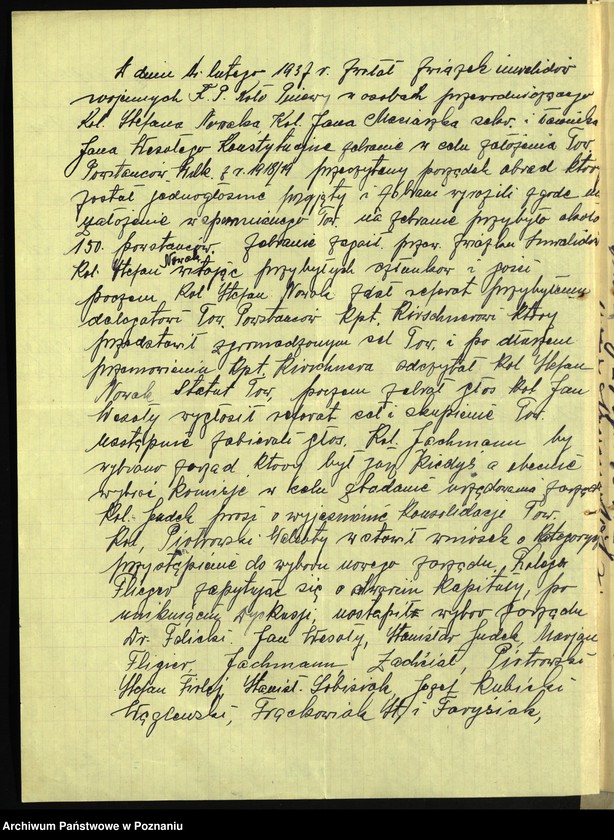 W dniu 4. lutego 1937 r. zwołał Związek inwalidów
wojennych R. P. Koło Pniewy w osobach przewodniczącego
Kol. Stefana Nowaka Kol. Jana Maciaszka sekr. i
Jana Wesołego Konstytucyjne zebranie w celu założenia Tow.
Powstańców Wlk. z r. 1918/19 przeczytany porządek obrad który
został jednogłośnie przyjęty i zebrani wyrazili zgodę na
założenie wspomnianego Tow. na zebranie przybyło około
150. powstańców, zebranie zagaił przew. Związku Inwalidów
Kol. Stefan Nowak witając przybyłych członków i gości
poczem Kol Stefan Nowak zdał referat przybyłemu
delegatowi Tow. Powstańców Kpt. Kirschnerowi który
przedstawił zgromadzonym cel Tow. i po dłuższem
przemówieniu Kpt. Kirschnera odczytał Kol Stefan
Nowak Statut Tow, poczem zabrał głos Kol Jan
Wesoły wygłosił referat cel i skupienie Tow.
następnie zabierali głos. Kol. Jachmann by
wybrano zarząd który był już kiedyś a obecnie
wybrać komisję w celu zbadanie urzędowania zarządu
Kol. Judek prosi o wyjaśnienie konsolidacje Tow.
Kol, Piotrowski Walenty wstawił wniosek o
przystąpienie do wyboru nowego zarządu, Kolega
Flieger zapytuje się o kapituły, po
uniknięciu dyskusji, nastąpiło wybór zarządu
Dr. Falicki. Jan Wesoły, Stanisław Judek, Marjan
Fligier, Jachmann Piotrowski
Stefan Firlej, Stanisł. Sobisiak, Józef Kubicki
Węglewski, Frąckowiak St, i Farysiak,
Archiwum Państwowe w Poznaniu